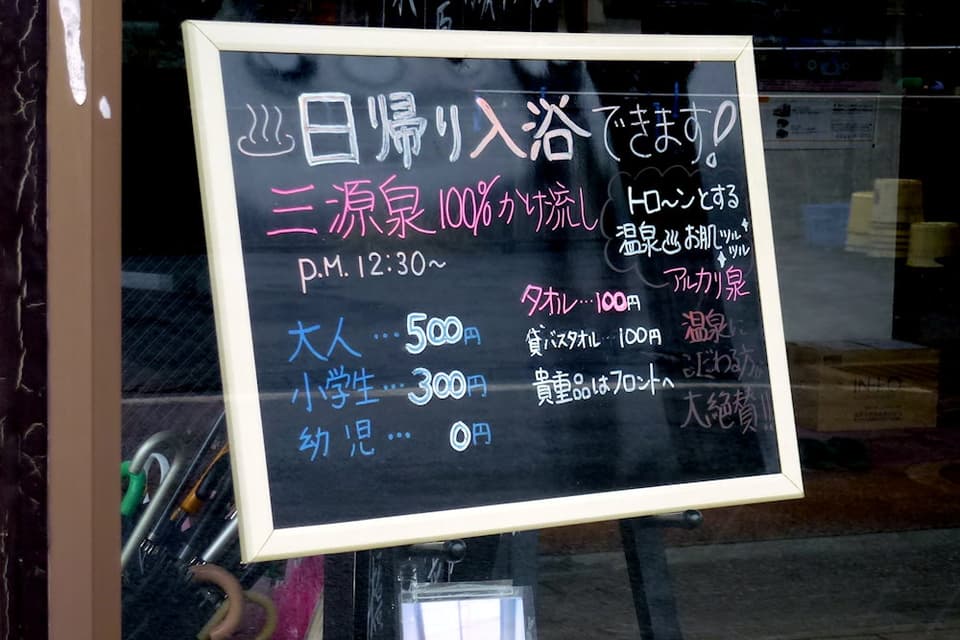 ♨日帰り入浴できます!
三源泉100%かけ流し
P.M. 12:30~
大人…500円
小学生…300円
幼児…0円
トロ~ンとする
温泉♨お肌ツルツル
アルカリ泉
タオル…100円
貸バスタオル…100円
貴重品はフロントへ
温泉に
こだわる方が
大絶賛!!